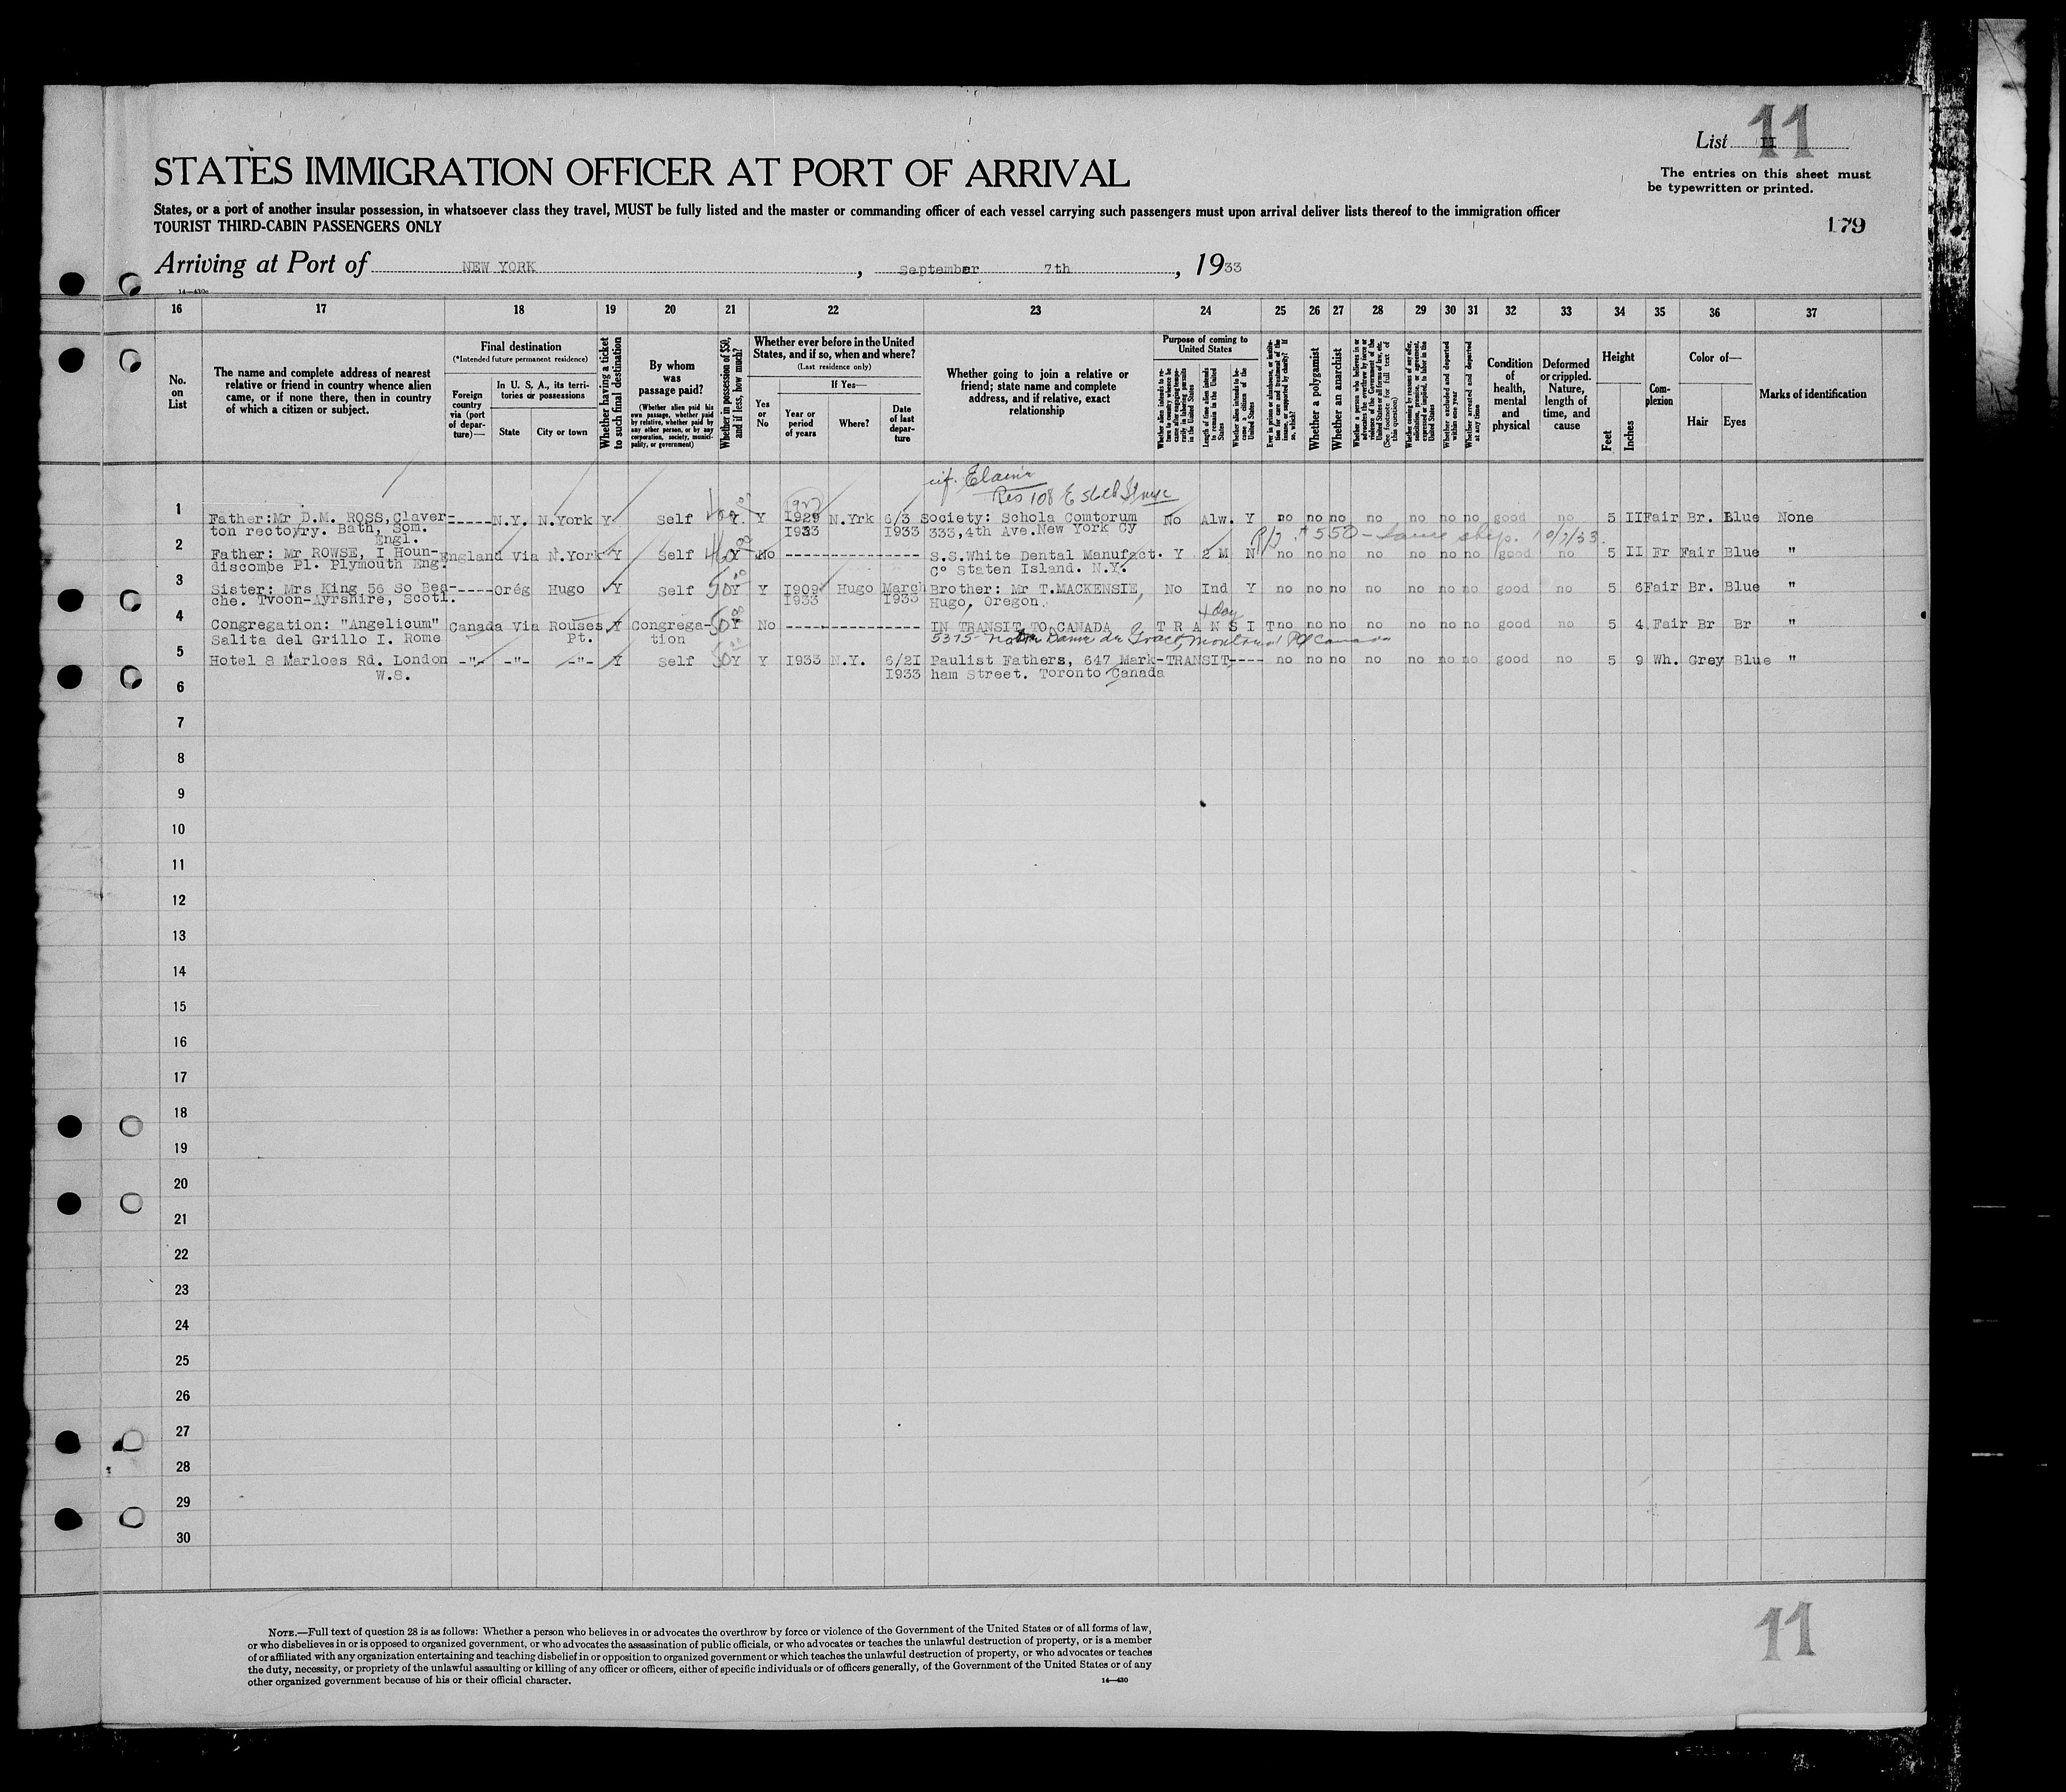 List 11
The entries on this sheet must
be typewritten or printed.
179
STATES IMMIGRATION OFFICER AT PORT OF ARRIVAL
States, or a port of another insular possession, in whatsoever class they travel, MUST be fully listed and the master or commanding officer of each vessel carrying such passengers must upon arrival deliver lists thereof to the immigration officer
TOURIST THIRD-CABIN PASSENGERS ONLY
Arriving at Port of NEW YORK, September 7th, 1933
14—430c
16 17 18 19 20 21 22 23 24 25 26 27 28 29 30 31 32 33 34 35 36 37
No. on List
The name and complete address of nearest relative or friend in country whence alien came, or if none there, then in country of which a citizen or subject.
Final destination
(*Intended future permanent residence)
Foreign country via (port of departure)—
In U. S. A., its territories or possessions
State
City or town
Whether having a ticket to such final destination
By whom was passage paid?
(Whether alien paid his own passage, whether paid by relative, whether paid by any other person, or by any corporation, society, municipality, or government)
Whether in possession of $50, and if less, how much?
Whether ever before in the United States, and if so, when and where?
(Last residence only)
Yes or No
If Yes—
Year or period of years
Where?
Date of last departure
Whether going to join a relative or friend; state name and complete address, and if relative, exact relationship
Purpose of coming to United States
Length of time alien intends to remain in the United States
Whether alien intends to become a citizen of the United States
Whether a polygamist
Whether an anarchist
(See footnote for full text of this question)
Whether excluded and deported within one year
Whether arrested and deported at any time
Condition of health, mental and physical
Deformed or crippled. Nature, length of time, and cause
Height
Feet
Inches
Complexion
Color of—
Hair
Eyes
Marks of identification
Res 108 E 56th St nyc
1 Father:Mr D.M. ROSS,Claver- ----- N.Y. N.York Y Self Y. Y 1929 N.Yrk 6/3 Society: Schola Comtorum No Alw. Y no no no no no no no good no 5 II Fair Br. Blue None
ton rectoyry. Bath, Som. 1933 1933 333,4th Ave.New York Cy
Engl.
$550 - same ship. 10/7/33.
2 Father: Mr ROWSE, I Houn- England Via N.York Y Self Y No ------------------- S.S.White Dental Manufact. Y 2 M N no no no no no no no good no 5 II Fr Fair Blue "
discombe Pl. Plymouth Eng. C° Staten Island. N.Y.
3 Sister: Mrs King 56 So Bea- ---- Orég Hugo Y Self 50 Y Y I909 Hugo March Brother: Mr T.MACKENSIE, No Ind Y no no no no no no no good no 5 6 Fair Br. Blue "
che. Tvoon-Ayrshire, Scotl. I933 I933 Hugo, Oregon.
4 day
4 Congregation: "Angelicum" Canada Via Rouses Y Congrega- 50 Y No ------------------- IN TRANSIT TO CANADA T R A N S I T no no no no no no no good no 5 4 Fair Br Br "
Salita del Grillo I. Rome Pt. tion 5375- Notre Dame de Grace, Montreal PQ Canada
5 Hotel 8 Marloes Rd. London -"- -"- -"- Y Self 50 Y Y I933 N.Y. 6/2I Paulist Fathers, 647 Mark- -TRANSIT---- no no no no no no no good no 5 9 Wh. Grey Blue "
W.S. I933 ham Street. Toronto Canada
6
7
8
9
10
11
12
13
14
15
16
17
18
19
20
21
22
23
24
25
26
27
28
29
30
NOTE.—Full text of question 28 is as follows: Whether a person who believes in or advocates the overthrow by force or violence of the Government of the United States or of all forms of law,
or who disbelieves in or is opposed to organized government, or who advocates the assassination of public officials, or who advocates or teaches the unlawful destruction of property, or is a member
of or affiliated with any organization entertaining and teaching disbelief in or opposition to organized government or which teaches the unlawful destruction of property, or who advocates or teaches
the duty, necessity, or propriety of the unlawful assaulting or killing of any officer or officers, either of specific individuals or of officers generally, of the Government of the United States or of any
other organized government because of his or their official character.
14—430
11